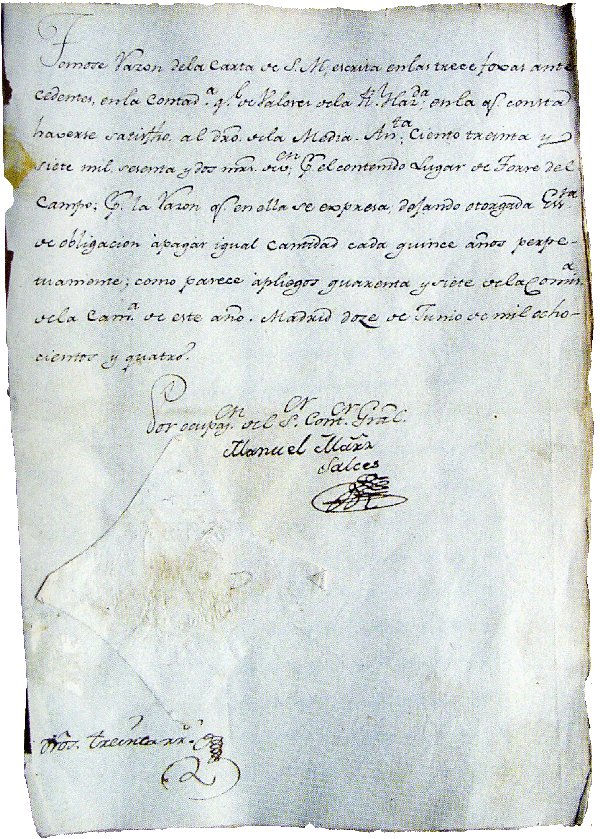 Tomose Razon de la Carta de S. M, escrita en las trece foxas ante
cedentes, en la Contad.ª g.l de Valores de la R.l Haz.da; en la q.e consta
haverse satisfho. al dro. de la Media An.ta; Ciento treinta y
siete mil, sesenta y dos mrs. de v.on; P.r el contenido Lugar de Torre del
Campo; P.r la Razon q.e en ella se expresa, dejando otorgada Ess.ra
de obligacion à pagar igual Cantidad cada quince años perpe-
tuamente; como parece à pliegos quarenta y siete de la Comis.n
de la Cam.ª de este año. Madrid doze de Junio de mil ocho-
cientos y quatro.
Por ocupaz.on del S.or Cont.or Gral.
Manuel Marn
Salces
Dros. treinta rr.s